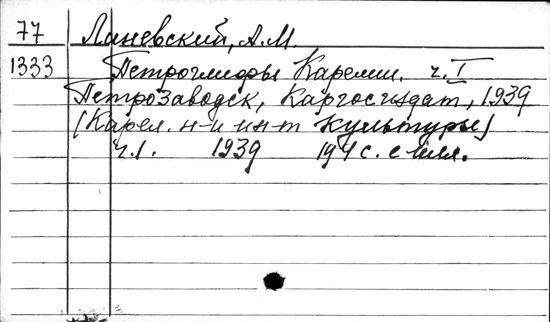 77 Линевский, А.М.
1333 Петроглифы Карелии. ч. I
Петрозаводск, Каргосиздат, 1939
(Карел. н-и ин-т культуры)
ч.1. 1939 194 с. с илл.